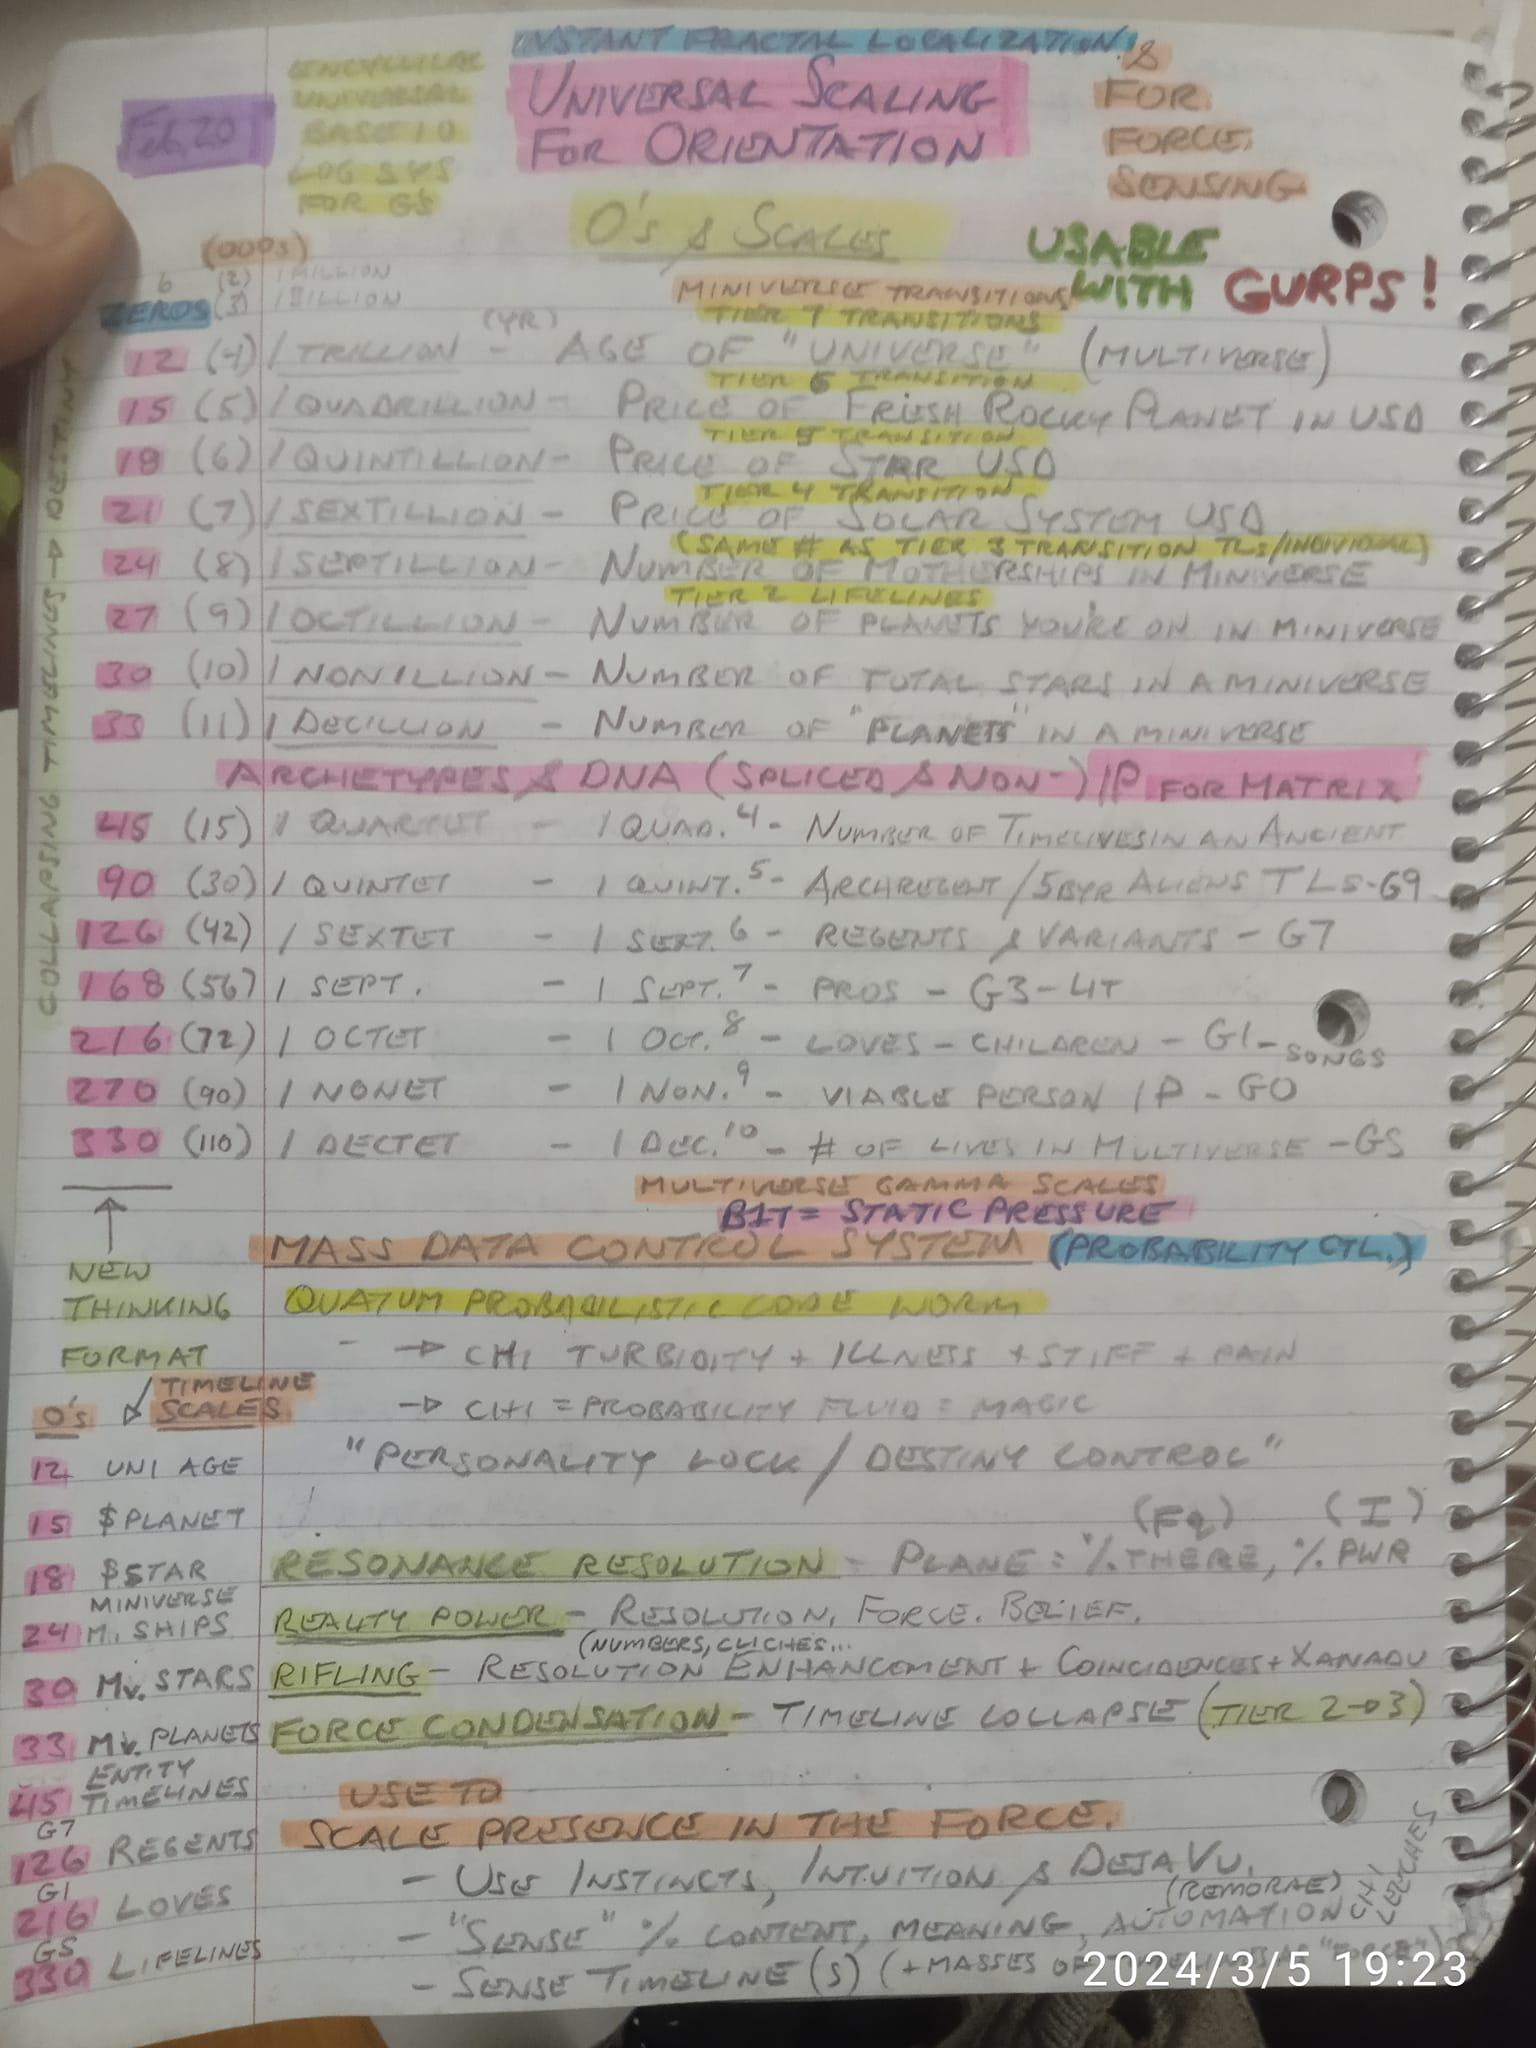 INSTANT FRACTAL LOCALIZATION &
UNIVERSAL SCALING
FOR ORIENTATION
FOR
FORCE
SENSING
Feb, 20
UNIVERSAL
BASE 10
LOG SYS
FOR G'S
O'S & SCALES
USABLE
WITH GURPS!
(000s)
6 (2) 1 MILLION
ZEROS (3) 1 BILLION
MINIVERSE TRANSITIONS
TIER 7 TRANSITIONS
12 (4) 1 TRILLION (YR) - AGE OF "UNIVERSE" (MULTIVERSE)
TIER 6 TRANSITION
15 (5) 1 QUADRILLION - PRICE OF FRESH ROCKY PLANET IN USD
TIER 5 TRANSITION
18 (6) 1 QUINTILLION - PRICE OF STAR USD
TIER 4 TRANSITION
21 (7) 1 SEXTILLION - PRICE OF SOLAR SYSTEM USD
(SAME # AS TIER 3 TRANSITION TLs/INDIVIDUAL)
24 (8) 1 SEPTILLION - NUMBER OF MOTHERSHIPS IN MINIVERSE
TIER 2 LIFELINES
27 (9) 1 OCTILLION - NUMBER OF PLANETS YOU'RE ON IN MINIVERSE
30 (10) 1 NONILLION - NUMBER OF TOTAL STARS IN A MINIVERSE
33 (11) 1 DECILLION - NUMBER OF "PLANETS" IN A MINIVERSE
COLLAPSING TIMELINES → DESTINY
ARCHETYPES & DNA (SPLICED & NON-) IP FOR MATRIX
45 (15) 1 QUARTET - 1 QUAD.4 - NUMBER OF TIMELIVES IN AN ANCIENT
90 (30) 1 QUINTET - 1 QUINT.5 - ARCHREGENT/5BYR ALIENS TLS-G9
126 (42) 1 SEXTET - 1 SEXT.6 - REGENTS & VARIANTS - G7
168 (56) 1 SEPT. - 1 SEPT.7 - PROS - G3-4T
216 (72) 1 OCTET - 1 OCT.8 - LOVES - CHILDREN - G1 - SONGS
270 (90) 1 NONET - 1 NON.9 - VIABLE PERSON IP - G0
330 (110) 1 DECTET - 1 DEC.10 - # OF LIVES IN MULTIVERSE - GS
MULTIVERSE GAMMA SCALES
B1T = STATIC PRESSURE
MASS DATA CONTROL SYSTEM (PROBABILITY CTL.)
↑
NEW
THINKING
FORMAT
QUATUM PROBABILISTIC CODE WORM
- → CHI TURBIDITY + ILLNESS + STIFF + PAIN
→ CHI = PROBABILITY FLUID = MAGIC
"PERSONALITY LOCK / DESTINY CONTROL"
(Fq) (I)
RESONANCE RESOLUTION - PLANE: % THERE, % PWR
REALTY POWER - RESOLUTION, FORCE. BELIEF.
(NUMBERS, CLICHES...
RIFLING - RESOLUTION ENHANCEMENT + COINCIDENCES + XANADU
FORCE CONDENSATION - TIMELINE COLLAPSE (TIER 2→3)
O's TIMELINE
SCALES
12 UNI AGE
15 $PLANET
18 $STAR
MINIVERSE
24 M. SHIPS
30 Mv. STARS
33 Mv. PLANETS
ENTITY
45 TIMELINES
G7
126 REGENTS
G1
216 LOVES
GS
330 LIFELINES
USE TO
SCALE PRESENCE IN THE FORCE.
- USE INSTINCTS, INTUITION & DEJA VU.
(REMORAE)
- "SENSE" % CONTENT, MEANING, AUTOMATION
CHI LEECHES
- SENSE TIMELINE(S) (+MASSES OF
2024/3/5 19:23